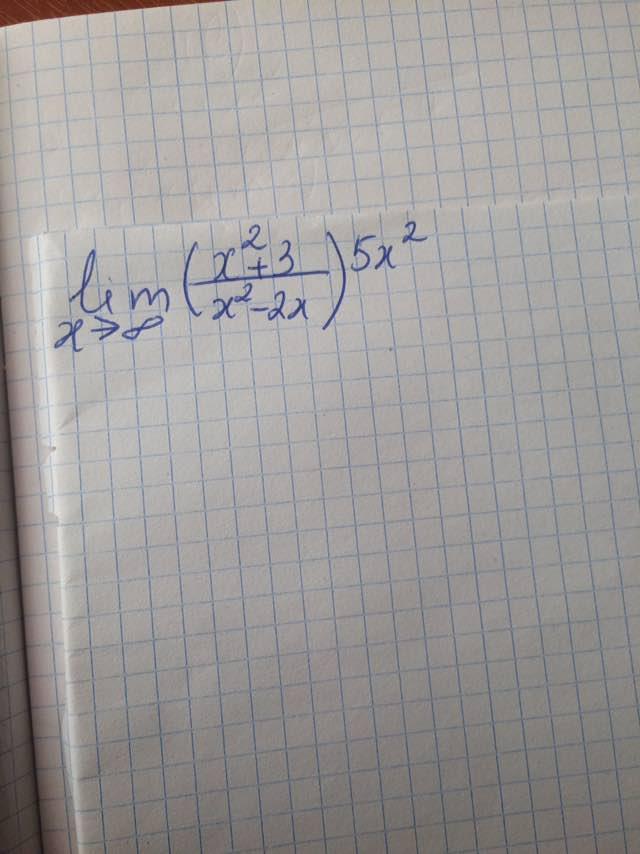 lim (x²+3 / x²-2x) 5x²
x→∞